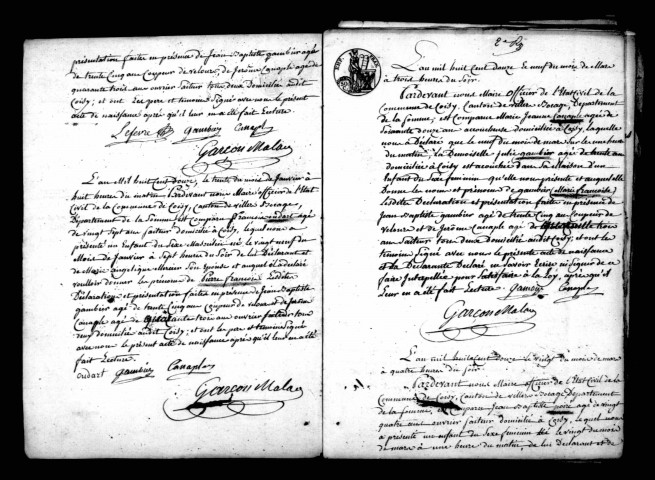 présentation faite en présence de Jean Baptiste gambier agé
de trente cinq ans coupeur de velours, de Jerôme Canaple agé de
quarante trois ans ouvrier saiteur tous deux Domiciliés audit
Coisy; et ont les pere et témoins signé avec nous le présent
acte de naissance après qu'il leur en a été fait lecture.
Lefevre gambier Canaple
Garçon Malan
L'an Mil huit cent Douze, le trente du mois de Janvier à
huit heure du matin Pardevant nous Maire officier de l'état
Civil de la commune de Coisy, Canton de villers Bocage,
Département de la Somme est comparu François oudart agé
de vingt sept ans saiteur domicilié à Coisy, lequel nous a
présenté un Enfant du Sexe Masculin né le vingt neuf du
Mois de Janvier à sept heure du soir de lui Déclarant et
de Marie angelique Mercier son Epouse et auquel il a déclaré
vouloir donner les prenoms de Pierre François Lesdites
Déclaration et présentation faites en présence de Jean Baptiste
gambier agé de trente cinq ans coupeur de velours et de Jerôme
Canaple agé de trois ans ouvrier saiteur tous
deux domiciliés audit Coisy; et ont les pere et témoins signé
avec nous le présent acte de naissance après qu'il leur en a été
fait Lecture.
oudart gambier Canaple
Garçon Malan
2e
L'an mil huit cent douze le neuf du mois de Mars
à trois heures du Soir.
Pardevant nous Maire Officier de l'état Civil de la
Commune de Coisy, Canton de Villers Bocage, Département
de la Somme, est Comparue Marie Jeanne Canaple agée de
soixante douze ans accoucheuse domiciliée à Coisy, laquelle
nous a Déclaré que le neuf du mois de mars sur les une heure
du matin, la Demoiselle julie gambier agée de trente ans
domiciliée à Coisy est accouchée dans sa Maison d'un
Enfant du Sexe feminin qu'elle nous présente et auquel elle
Donne les nom et prénoms de gambier Marie françoise;
Lesdites Déclaration et présentation faites en présence de
Jean Baptiste gambier agé de trente cinq ans Coupeur de
Velours et de Jerôme Canaple agé de trois
ans Saiteur tous deux Domiciliés audit Coisy; et ont les
témoins Signé avec nous le présent acte de naissance
et la Déclarante Déclaré ne savoir Ecrire ni signer de ce
faire Interpellée pour satisfaire à la loy, après qu'il
Leur en a été fait Lecture. gambier Canaple
Garçon Malan
L'an mil huit cent douze le vingt du mois de mars
à quatre heures du soir.
Pardevant nous Maire officier de l'état Civil de la
Commune de Coisy, Canton de villers Bocage Département
de la Somme, est comparu Jean Baptiste agé de vingt
quatre ans ouvrier saiteur domicilié à Coisy, lequel nous
a présenté un enfant du Sexe feminin né le vingt du mois
de mars à une heure du matin, de lui Déclarant et de